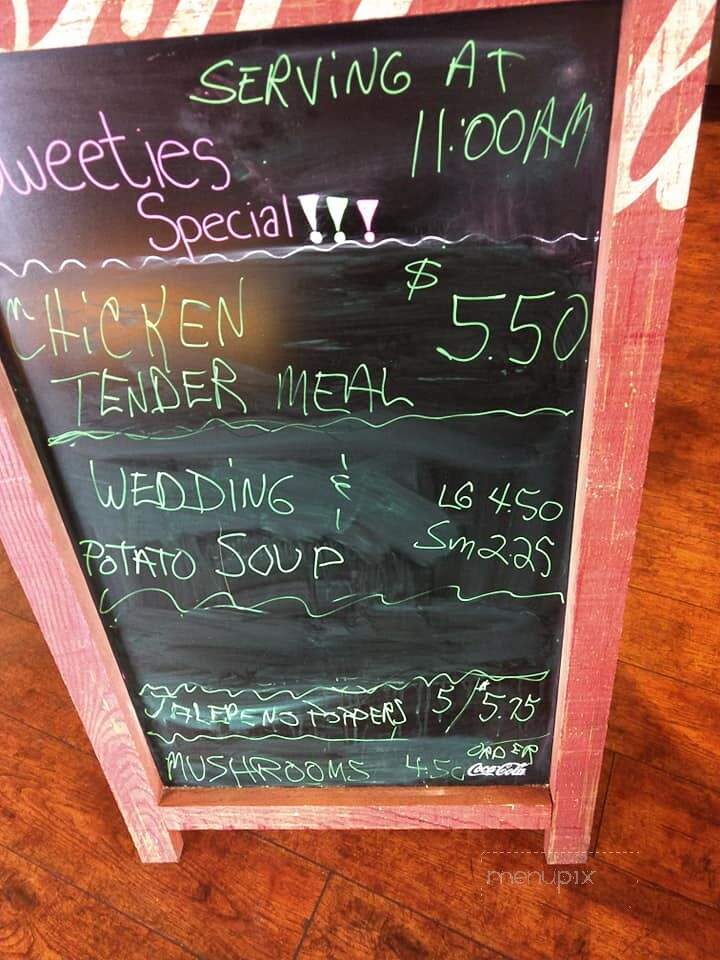 SERVING AT
11:00AM
weeties
Special!!!
CHICKEN $5.50
TENDER MEAL
WEDDING & LG 4.50
POTATO SOUP Sm 2.25
JALEPENO POPPERS 5/$5.75
MUSHROOMS 4.50 ORDER
Coca-Cola
menupix